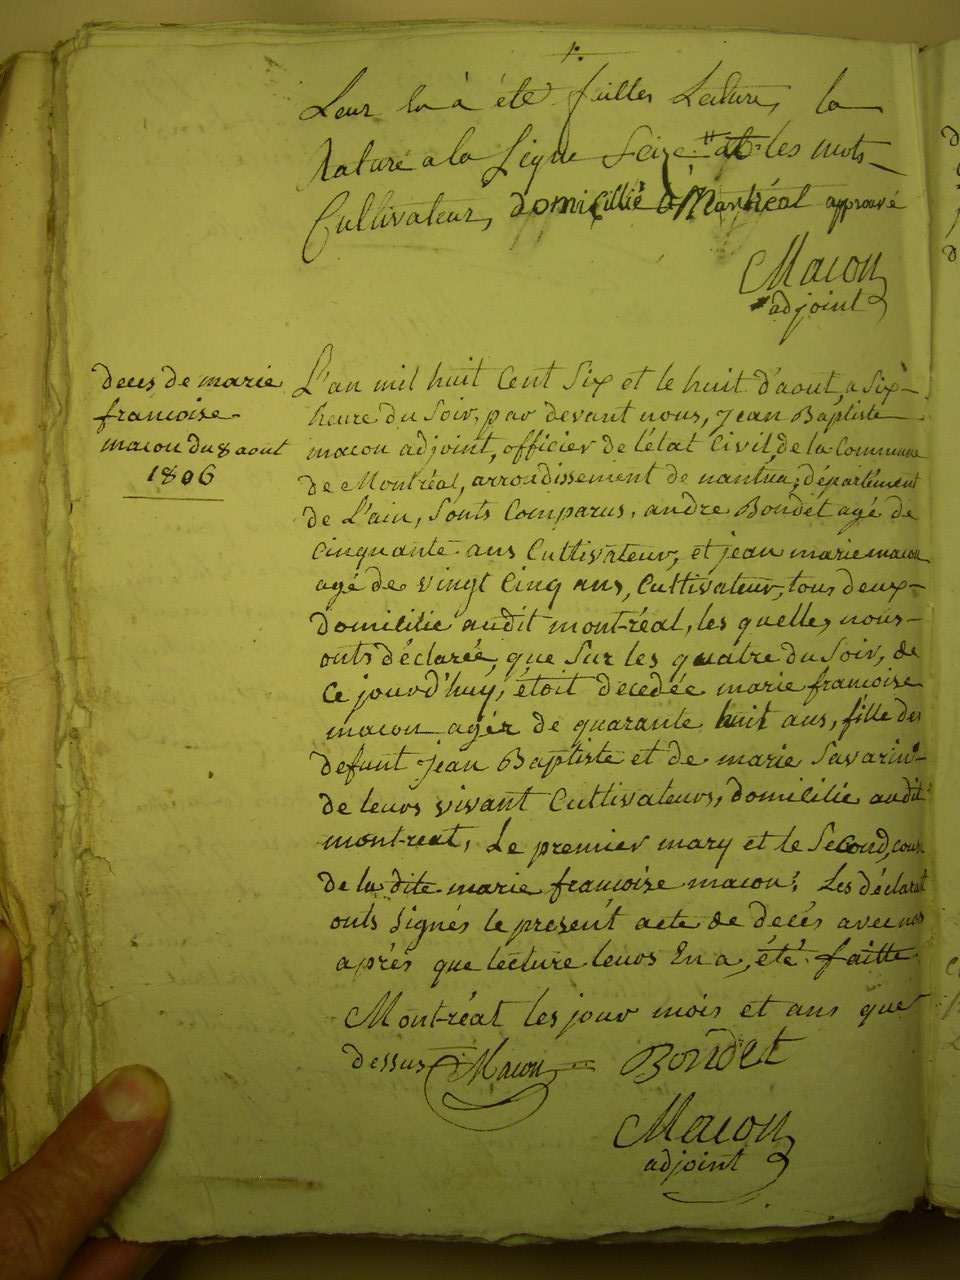 Leur En à été faittes Lecture, la
Rature a la Ligne Seize et les mots
Cultivateur, domicillié à Montréal approuvé
Macon
adjoint
deces de marie
francoise
macon du 8 aout
1806
L'an mil huit Cent Six et le huit d'aout, a Six
heure du Soir, par devant nous, Jean Baptiste
macon adjoint, officier de l'état Civil de la Commune
de Montréal, arrondissement de nantua, département
de L'ain, Sonts Comparus, andre Bondet agé de
Cinquante ans Cultivateur, et jean marie macon
agé de vingt Cinq ans, Cultivateur, tous deux
domicilié audit mont-réal, les quelles nous
onts déclarée, que Sur les quatre du Soir, de
Ce jourd'huy, étoit decedée marie francoise
macon agée de quarante huit ans, fille des
defunt Jean Baptiste et de marie Savarin
de leurs vivant Cultivateurs, domicilié audit
mont-reat, Le premier mary et le Second, cousin
de la dite marie francoise macon; Les déclarant
onts Signés le présent acte de decés avec nous
aprés que lecture leurs En a été faitte
Mont-réat les jour mois et ans que
dessus Macon Bondet
Macon
adjoint